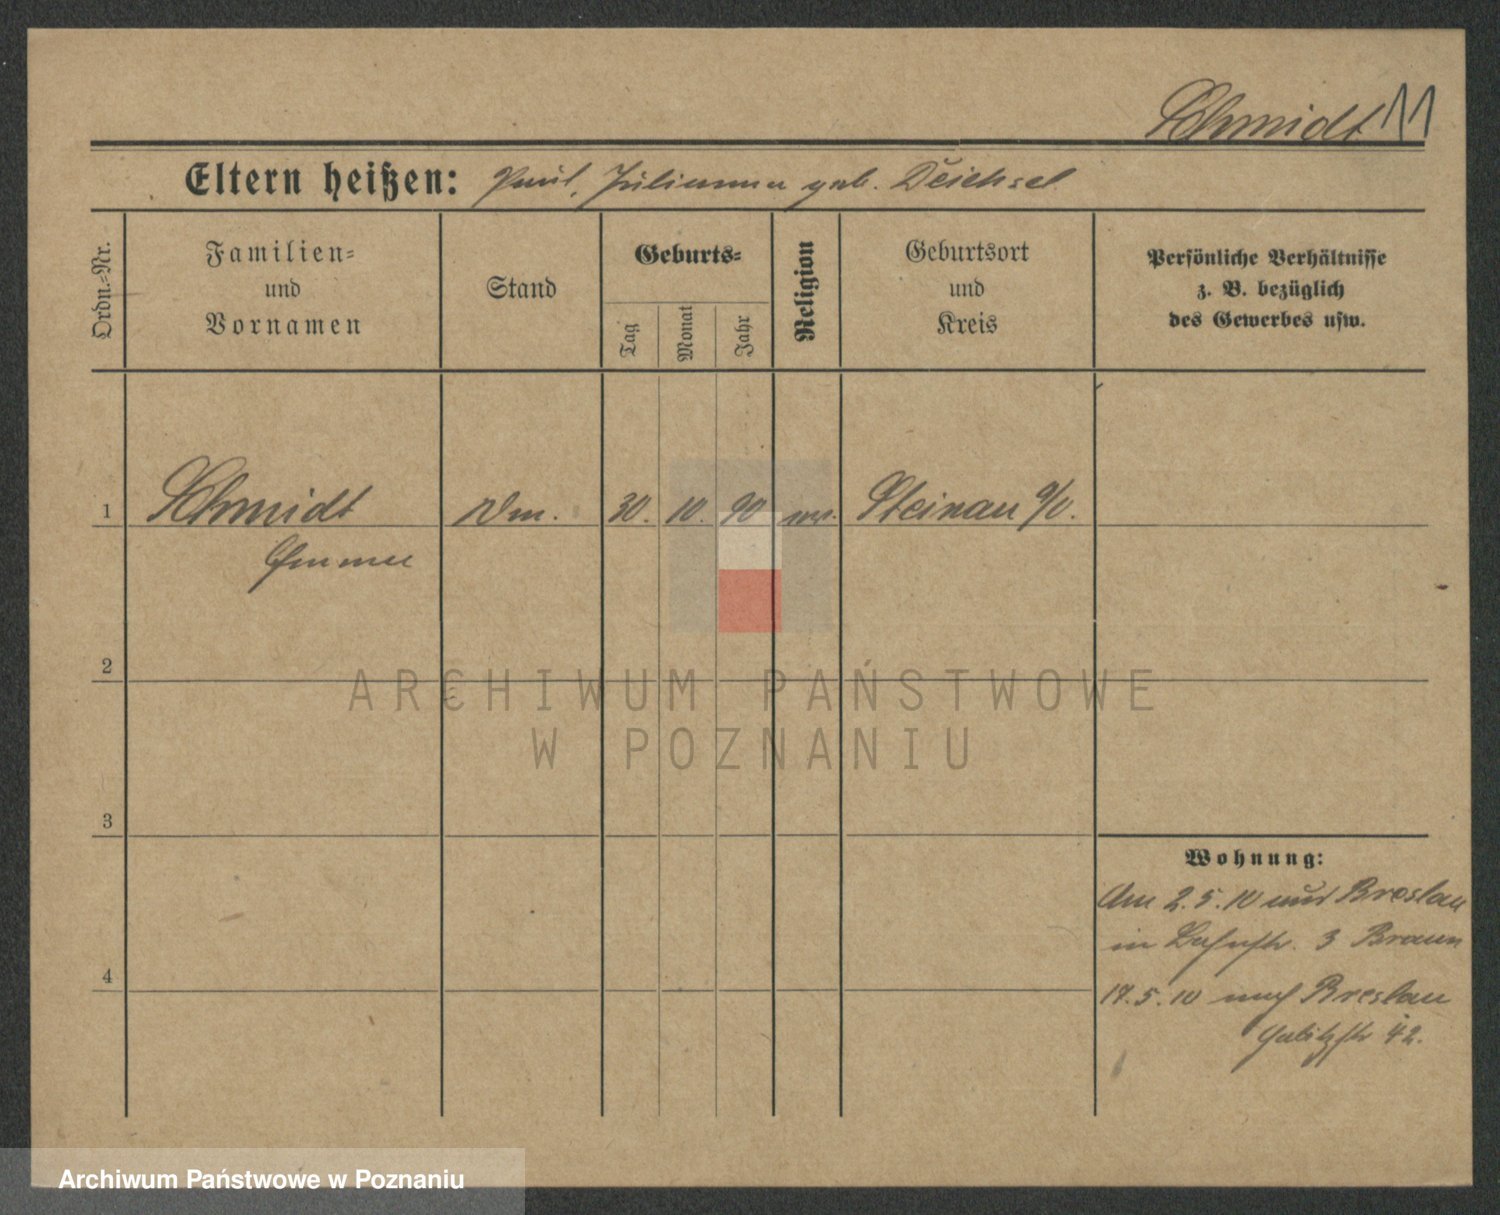 Schmidt 11
Eltern heißen: Paul, Julianna geb. Deichsel
Ordn.-Nr.
Familien-
und
Vornamen
Stand
Geburts-
Tag
Monat
Jahr
Religion
Geburtsort
und
Kreis
Persönliche Verhältnisse
z. B. bezüglich
des Gewerbes usw.
1 Schmidt 30. 10. 90 Steinau a/O.
Emma
2
ARCHIWUM PAŃSTWOWE
W POZNANIU
3
Wohnung:
Am 2.5.10 aus Breslau
in 3 Braun
4
17.5.10 nach Breslau
42.
Archiwum Państwowe w Poznaniu